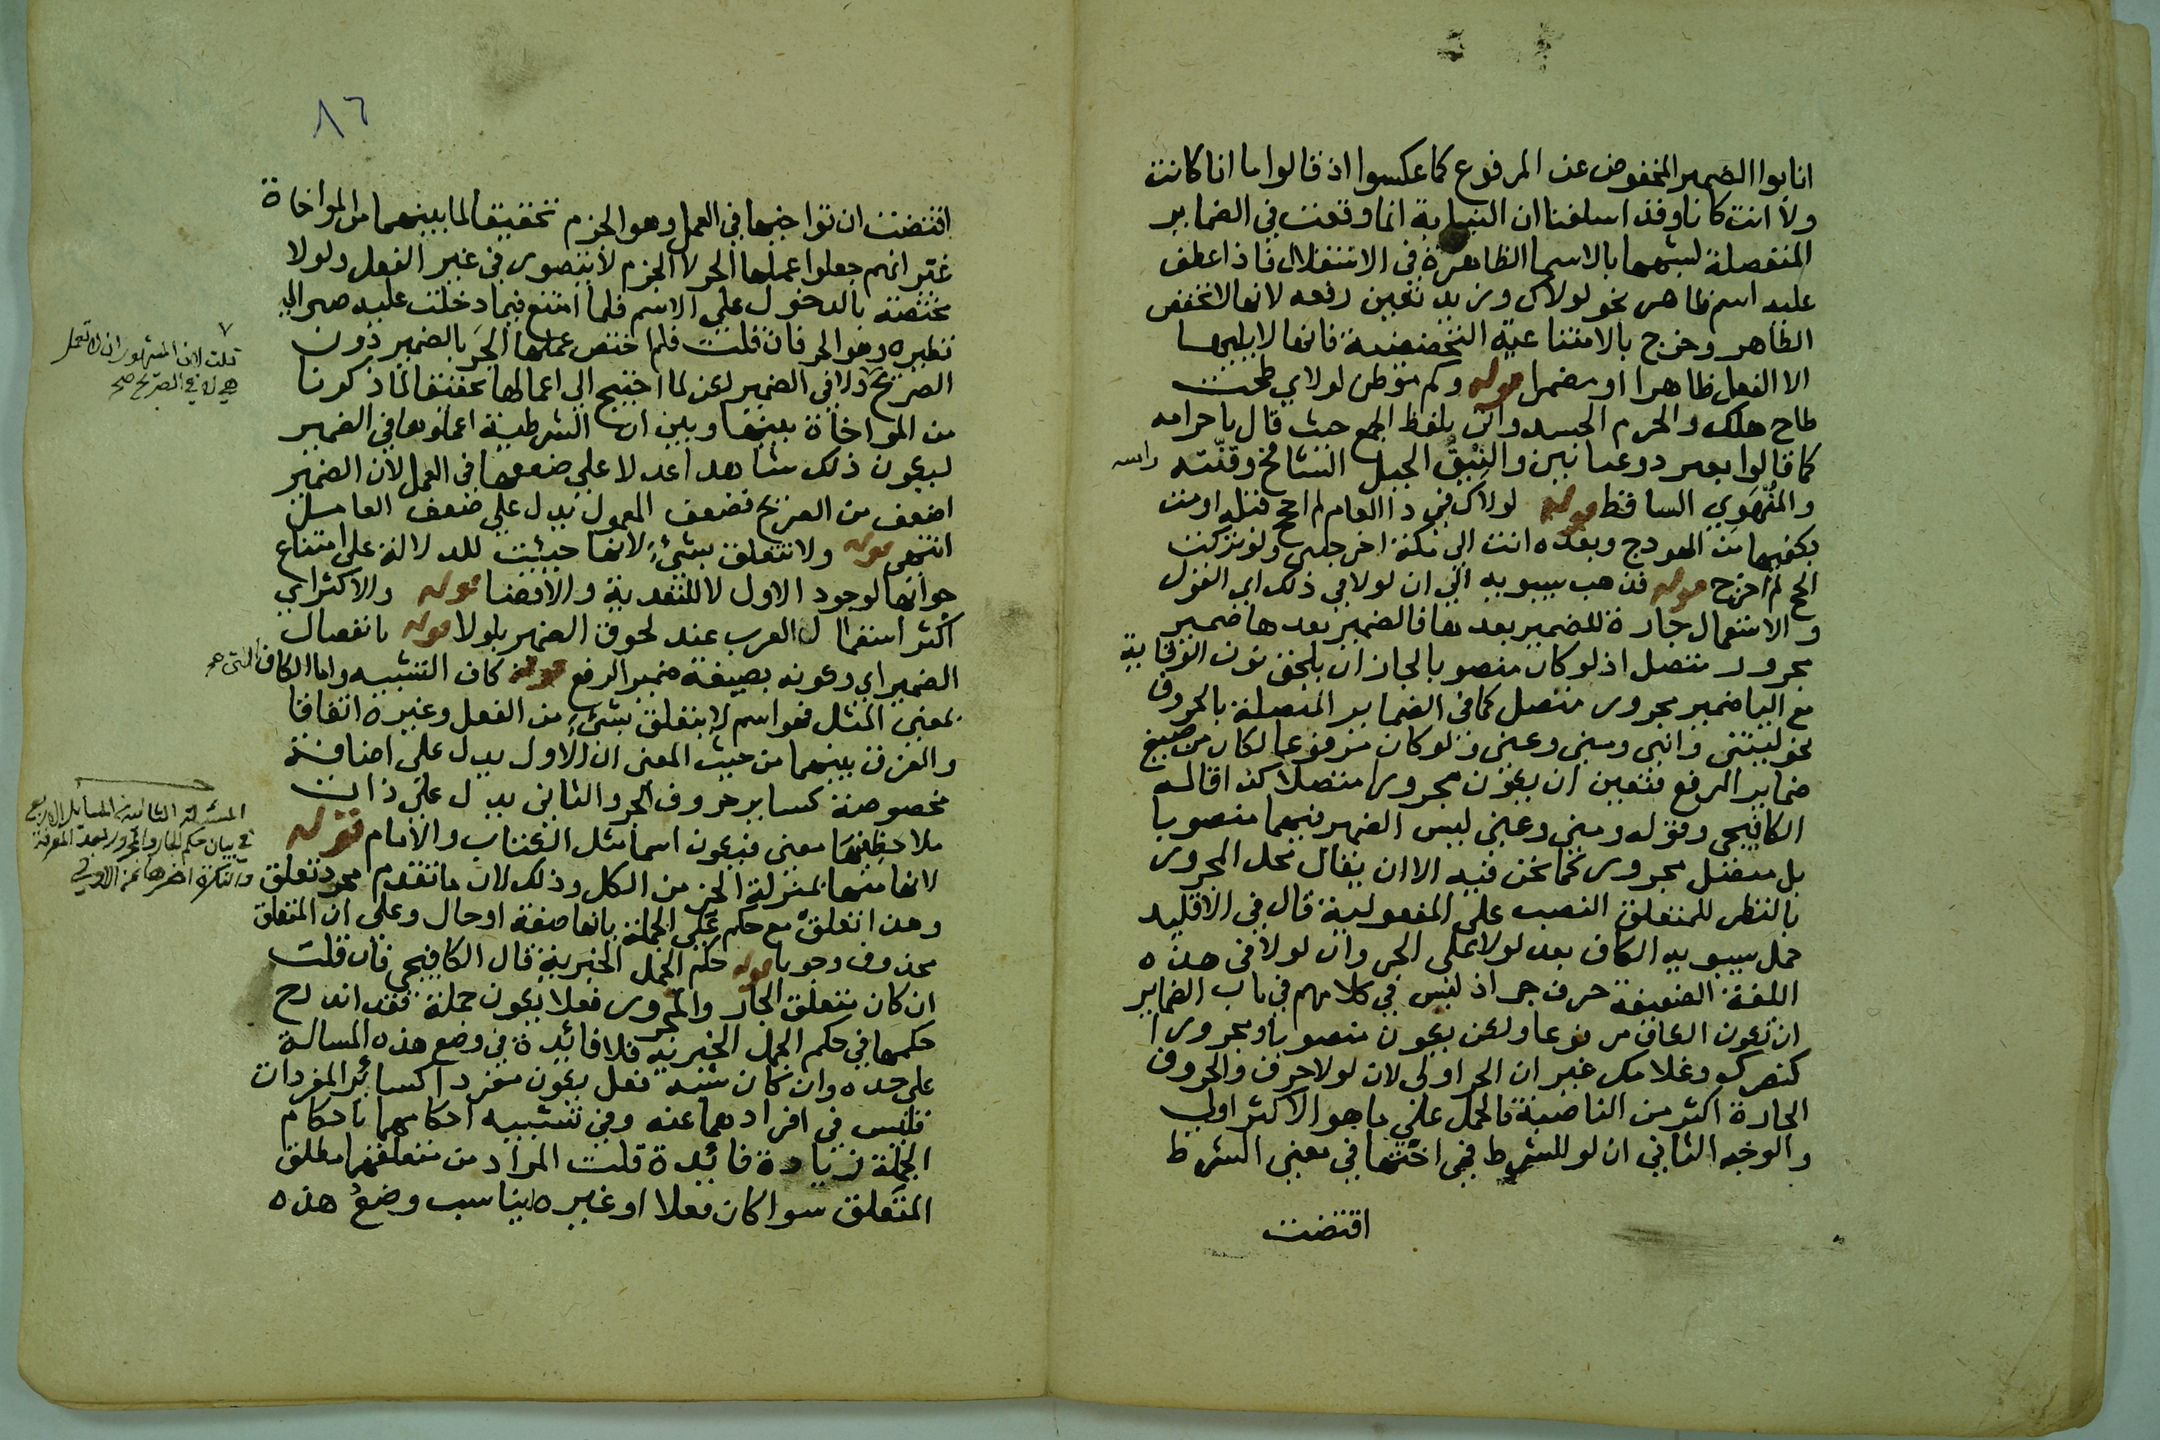 انابوا الضمير المخفوض عن المرفوع كما عكسوا اذ قالوا ما انا كانت
ولا انت كانا وقد اسلفنا ان النيابة انما وقعت في الضماير
المنفصلة لشبهها بالاسما الظاهرة في الاستقلال فاذا عطف
عليه اسم ظاهر نحو لولاك وزيد تعين رفعه لانها لا تخفض
الظاهر وخرج بالامتناعية التحضيضية فانها لا يليها
الا الفعل ظاهرا او مضمرا قوله وكم موطن لولاي طحت
طاح هلك والجرم الجسد واتى بلفظ الجمع حيث قال باجرامه
كما قالوا بعير ذو عثانين والنِيْقُ الجبل الشامخ وقلّته راسه
والمُنْهَوِي الساقط قوله لولاك في ذا العام لم احجج قبله اومت
بكفيها من الهودج وبعده انت الي مكة اخرجتني ولو تركت
الحج لم اخرج قوله فذهب سيبويه الي ان لولا في ذلك اي القول
والاستعمال جارة للضمير بعدها فالضمير بعدها ضمير
مجرور متصل اذ لو كان منصوبا لجاز ان يلحق نون الوقاية
مع اليا ضمير مجرور متصل كما في الضماير المتصلة بالحروف
نحو ليتني وانني ومني وعني ولو كان مرفوعا لكان من صيغ
ضماير الرفع فتعين ان يكون مجرورا متصلا كذا قاله
الكافيجي وقوله ومني وعني ليس الضمير فيهما منصوبا
بل متصل مجرور كما نحن فيه الا ان يقال محل المجرور
بالنظر للمتعلق النصب على المفعولية قال في الاقليد
حمل سيبويه الكاف بعد لولا على الجر وان لولا في هذه
اللغة الضعيفة حرف جر اذ ليس في كلامهم في باب الضماير
ان تكون الكاف مرفوعا ولكن يكون منصوبا او مجرورا
كنصرك وغلامك غير ان الجر اولى لان لولا حرف والحروف
الجارة اكثر من الناصبة فالحمل علي ما هو الاكثر اولي
والوجه الثاني ان لو للشرط فهي اختها في معنى الشرط
اقتضت
٨٦
اقتضت ان تواخيها في العمل وهو الجزم تحقيقا لما بينهما من المواخاة
غير انهم جعلوا عملها الجر لا الجزم لا يتصور في غير الفعل ولولا
مختصة بالدخول علي الاسم فلما امتنع فيما دخلت عليه صير الي
نظيره وهو الجر فان قلت فلم اختص عملها الجر بالضمير دون
الصريح ولا في الضمير لكن لما احتيج الي اعمالها تحقيقا لما ذكرنا
من المواخاة بينها وبين ان الشرطية اعملوها في الضمير
ليكون ذلك شاهدا عدلا علي ضعفها في العمل لان الضمير
اضعف من الصريح فضعف المعمول يدل علي ضعف العامل
انتهى قوله ولا تتعلق بشيء لانها جيئت للدلالة على امتناع
جوابها لوجود الاول لا للتعدية والافضا قوله والاكثر اي
اكثر استعمال العرب عند لحوق الضمير بلولا قوله بانفصال
الضمير اي وكونه بصيغة ضمير الرفع قوله كاف التشبيه واما الكاف التي صح
بمعنى المثل فهو اسم لا يتعلق بشيء من الفعل وغيره اتفاقا
والفرق بينهما من حيث المعنى ان الاول يدل على اضافة
مخصوصة كساير حروف الجر والثاني يدل علي ذات
ملاحظتها معنى فيكون اسما مثل الكتاب والامام قوله
لانها منها بمنزلة الجز من الكل وذلك لان ما تقدم مجرد تعلق
وهذا تعلق مع حكم علي الجملة بانها صفة او حال وعلي ان المتعلق
محذوف وجوبا قوله حكم الجمل الخبرية قال الكافيجي فان قلت
ان كان متعلق الجار والمجرور فعلا يكون جملة فقد اندرج
حكمها في حكم الجمل الخبرية فلا فائدة في وضع هذه المسالة
علي حده وان كان شبه فعل يكون مفردا كسائر المفردات
فليس في افرادهما عنه وفي تشبيه احكامهما باحكام
الجملة زيادة فائدة قلت المراد من متعلقهما مطلق
المتعلق سوا كان فعلا او غيره يناسب وضع هذه
٧
قلت لان المشهور ان لا تعمل
هي لا في الصريح صح
المسئلة الثالثة من المسائل الاربع
في بيان حكم الجار والمجرور بعد المعرفة
والنكرة